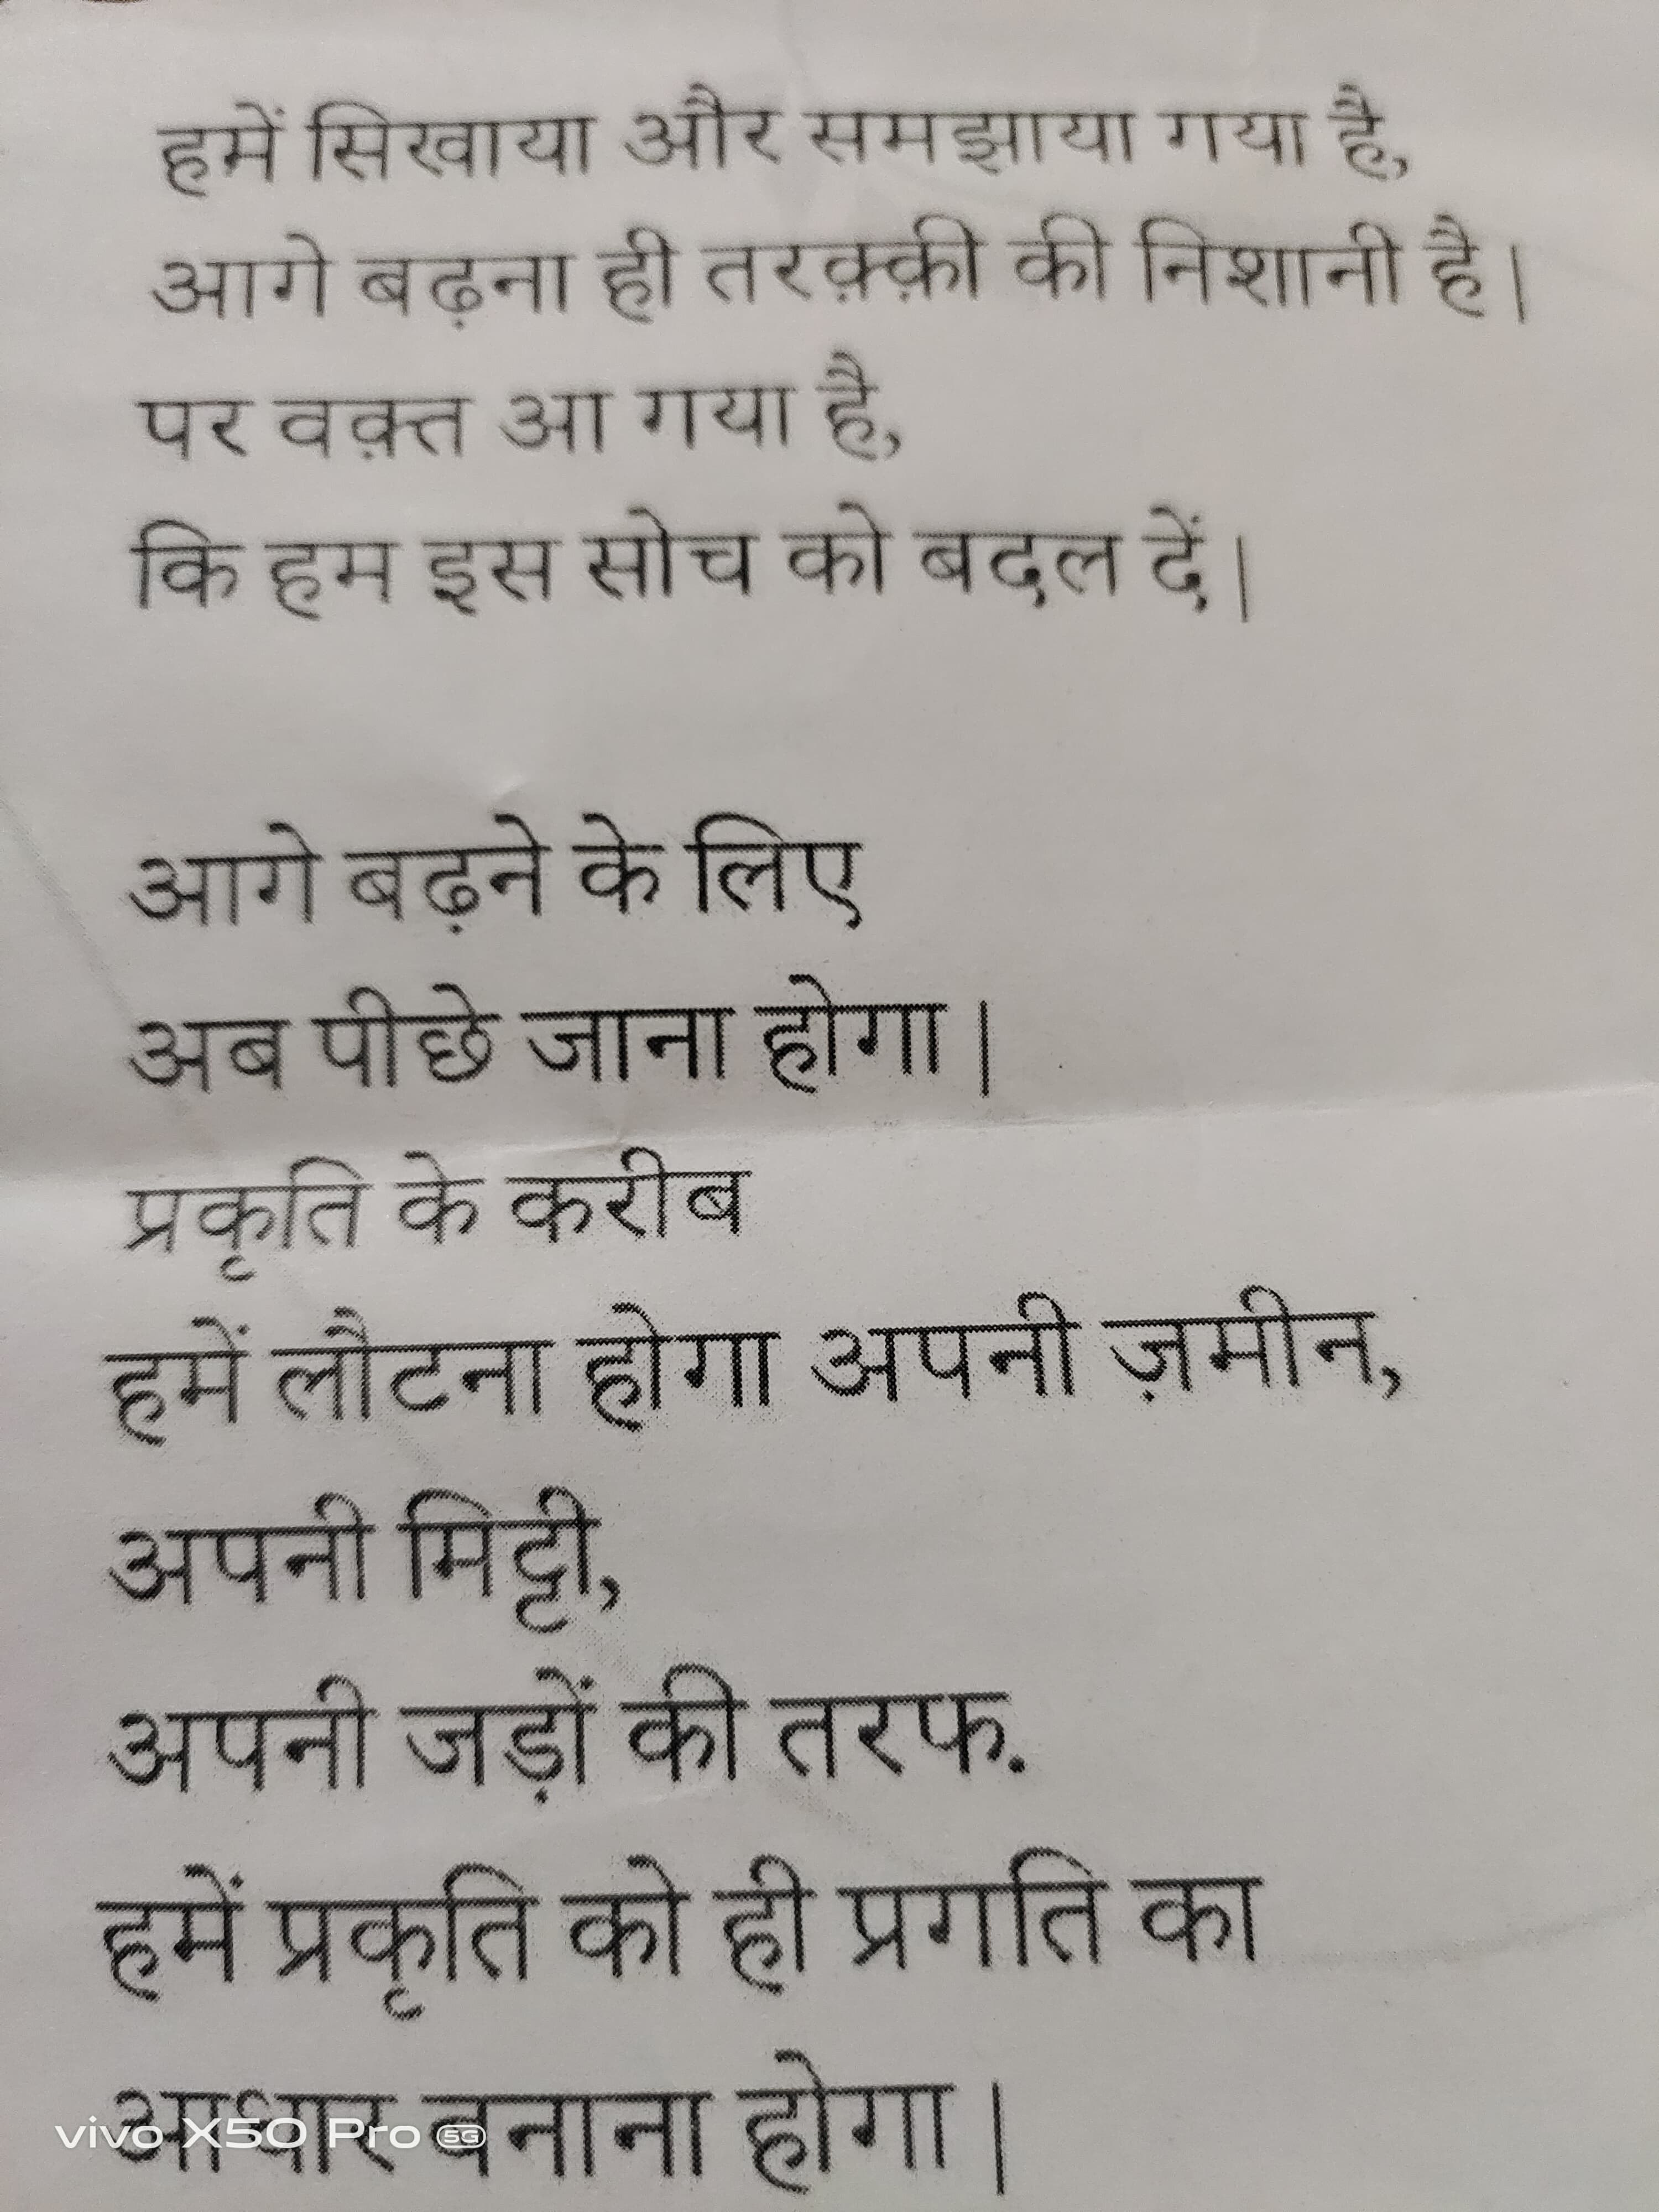 हमें सिखाया और समझाया गया है,
आगे बढ़ना ही तरक़्क़ी की निशानी है।
पर वक़्त आ गया है,
कि हम इस सोच को बदल दें।
आगे बढ़ने के लिए
अब पीछे जाना होगा।
प्रकृति के करीब
हमें लौटना होगा अपनी ज़मीन,
अपनी मिट्टी,
अपनी जड़ों की तरफ.
हमें प्रकृति को ही प्रगति का
आधार बनाना होगा।
vivo X50 Pro 5G